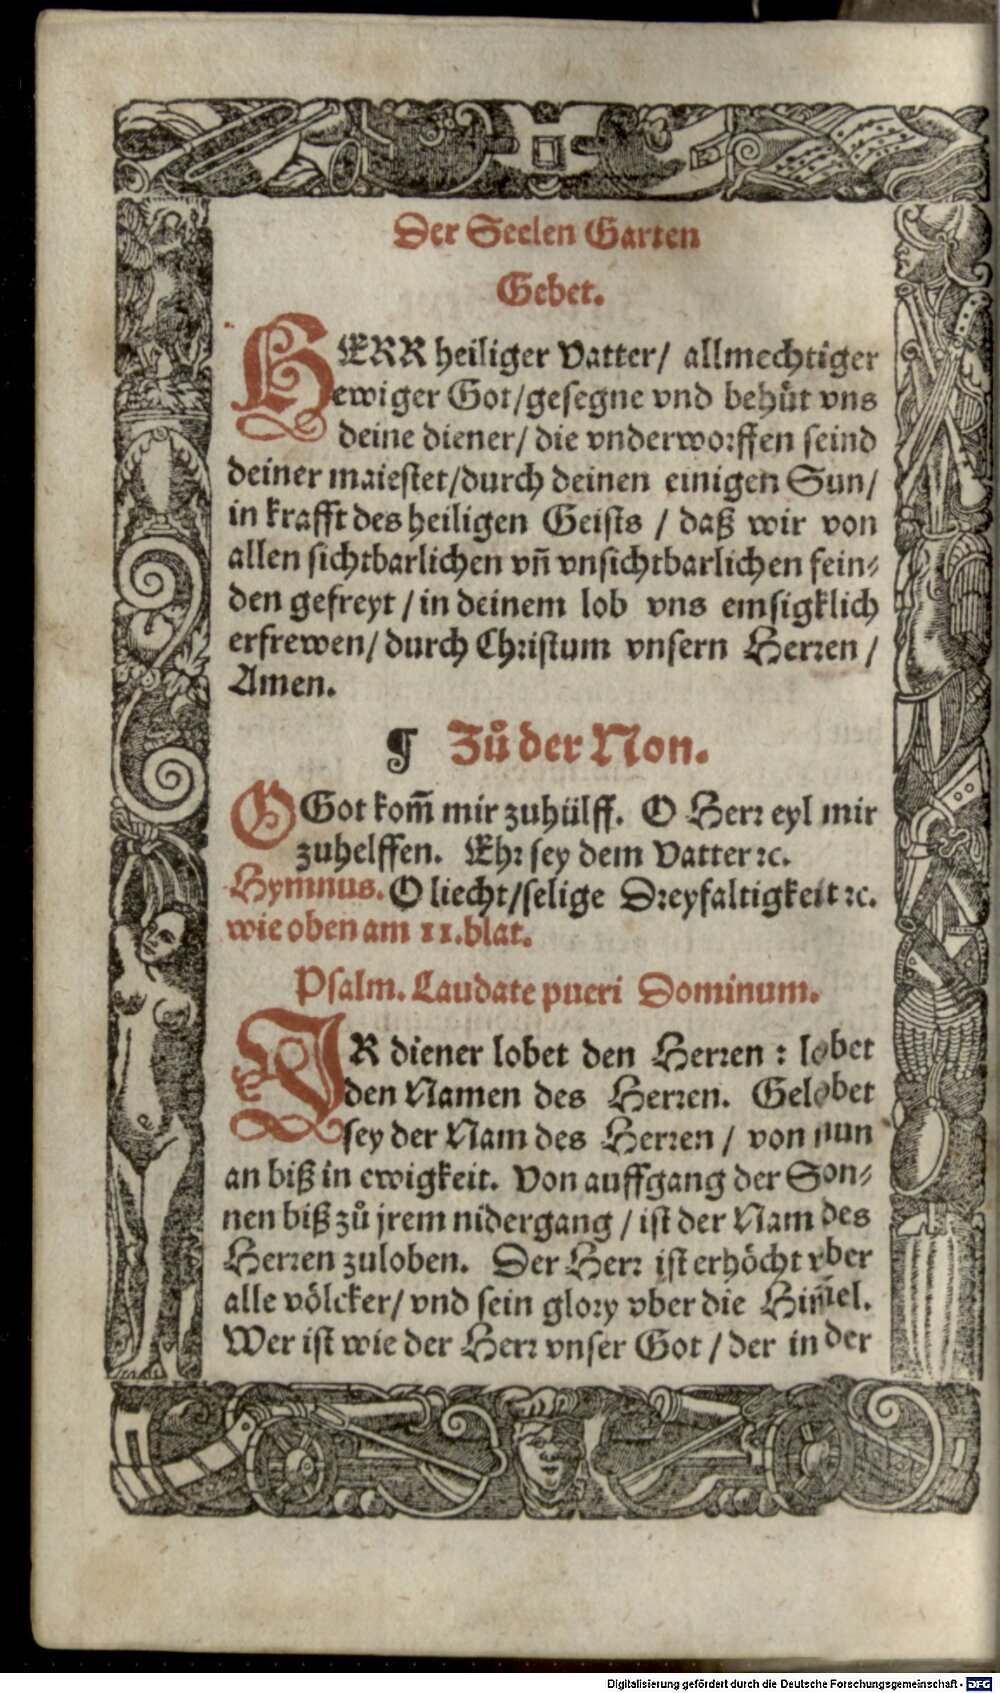 Der Seelen Garten
Gebet.
HERR heiliger Vatter/ allmechtiger
ewiger Got/gesegne vnd behüt vns
deine diener/ die vnderworffen seind
deiner maiestet/durch deinen einigen Sun/
in krafft des heiligen Geists / daß wir von
allen sichtbarlichen vñ vnsichtbarlichen fein⸗
den gefreyt / in deinem lob vns emsigklich
erfrewen/ durch Christum vnsern Herren /
Amen.
¶ Zů der Non.
O Got kom̃ mir zuhülff. O Herr eyl mir
zuhelffen. Ehr sey dem Vatter ꝛc.
Hymnus. O liecht/selige Dreyfaltigkeit ꝛc.
wie oben am 11.blat.
Psalm. Laudate pueri Dominum.
IR diener lobet den Herren : lobet
den Namen des Herren. Gelobet
sey der Nam des Herren / von nun
an biß in ewigkeit. Von auffgang der Son⸗
nen biß zů jrem nidergang / ist der Nam des
Herren zuloben. Der Herr ist erhöcht vber
alle völcker/ vnd sein glory vber die Him̃el.
Wer ist wie der Herr vnser Got / der in der
Digitalisierung gefördert durch die Deutsche Forschungsgemeinschaft - DFG